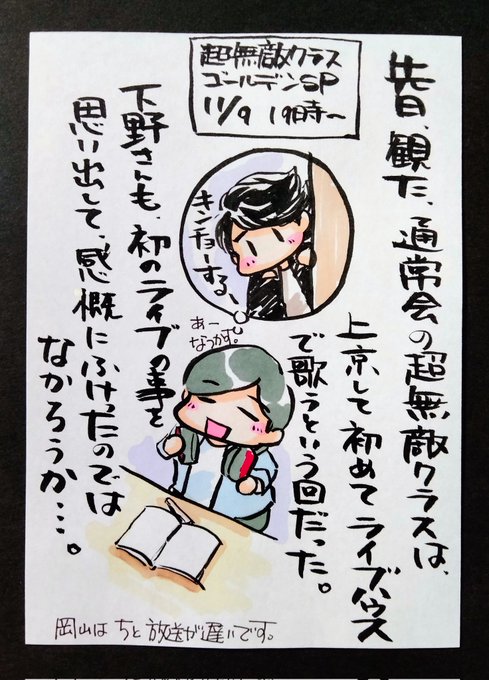 超無敵クラス
ゴールデンSP
11/9 19時〜
昔日、観た、通常会の超無敵クラスは、
上京して初めてライブハウス
で歌うという回だった。
キンチョーするー。
あー
なつかす。
下野さんも、初のライブの事を
思い出して、感慨にふけったのでは
なかろうか…。
岡山はちと放送が遅いです。